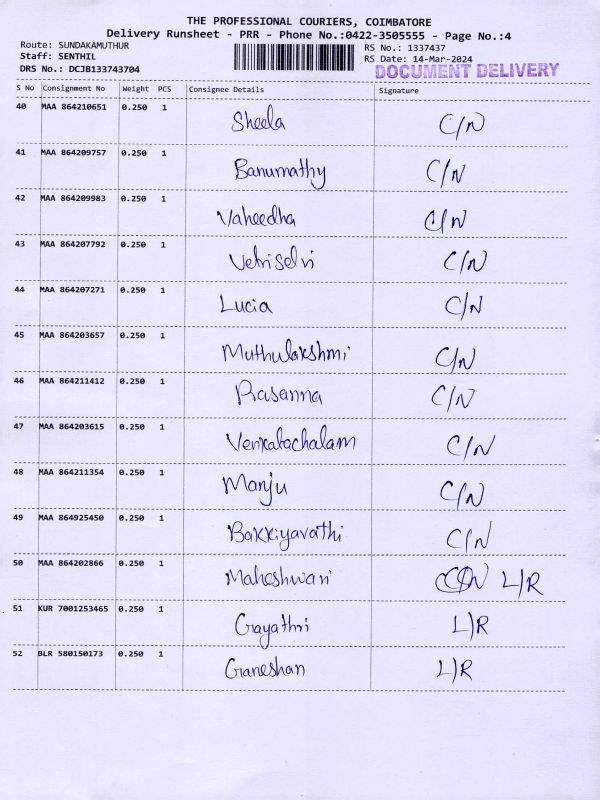 THE PROFESSIONAL COURIERS, COIMBATORE
Delivery Runsheet - PRR - Phone No.:0422-3505555 - Page No.:4
Route: SUNDAKAMUTHUR RS No.: 1337437
Staff: SENTHIL RS Date: 14-Mar-2024
DRS No.: DCJB133743704 DOCUMENT DELIVERY
S No Consignment No Weight PCS Consignee Details Signature
40 MAA 864210651 0.250 1 Sheela C/N
41 MAA 864209757 0.250 1 Banumathy C/N
42 MAA 864209983 0.250 1 Vaheedha C/N
43 MAA 864207792 0.250 1 Vetriselvi C/N
44 MAA 864207271 0.250 1 Lucia C/N
45 MAA 864203657 0.250 1 Muthulakshmi C/N
46 MAA 864211412 0.250 1 Prasanna C/N
47 MAA 864203615 0.250 1 Venkatachalam C/N
48 MAA 864211354 0.250 1 Manju C/N
49 MAA 864925450 0.250 1 Bakkiyavathi C/N
50 MAA 864202866 0.250 1 Maheshwari L/R
51 KUR 7001253465 0.250 1 Gayathri L/R
52 BLR 580150173 0.250 1 Ganeshan L/R